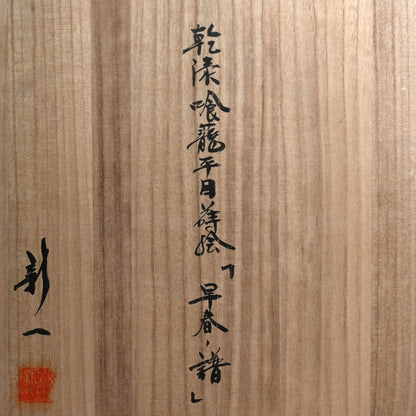 乾漆喰籠平目蒔絵「早春ノ譜」
彰一